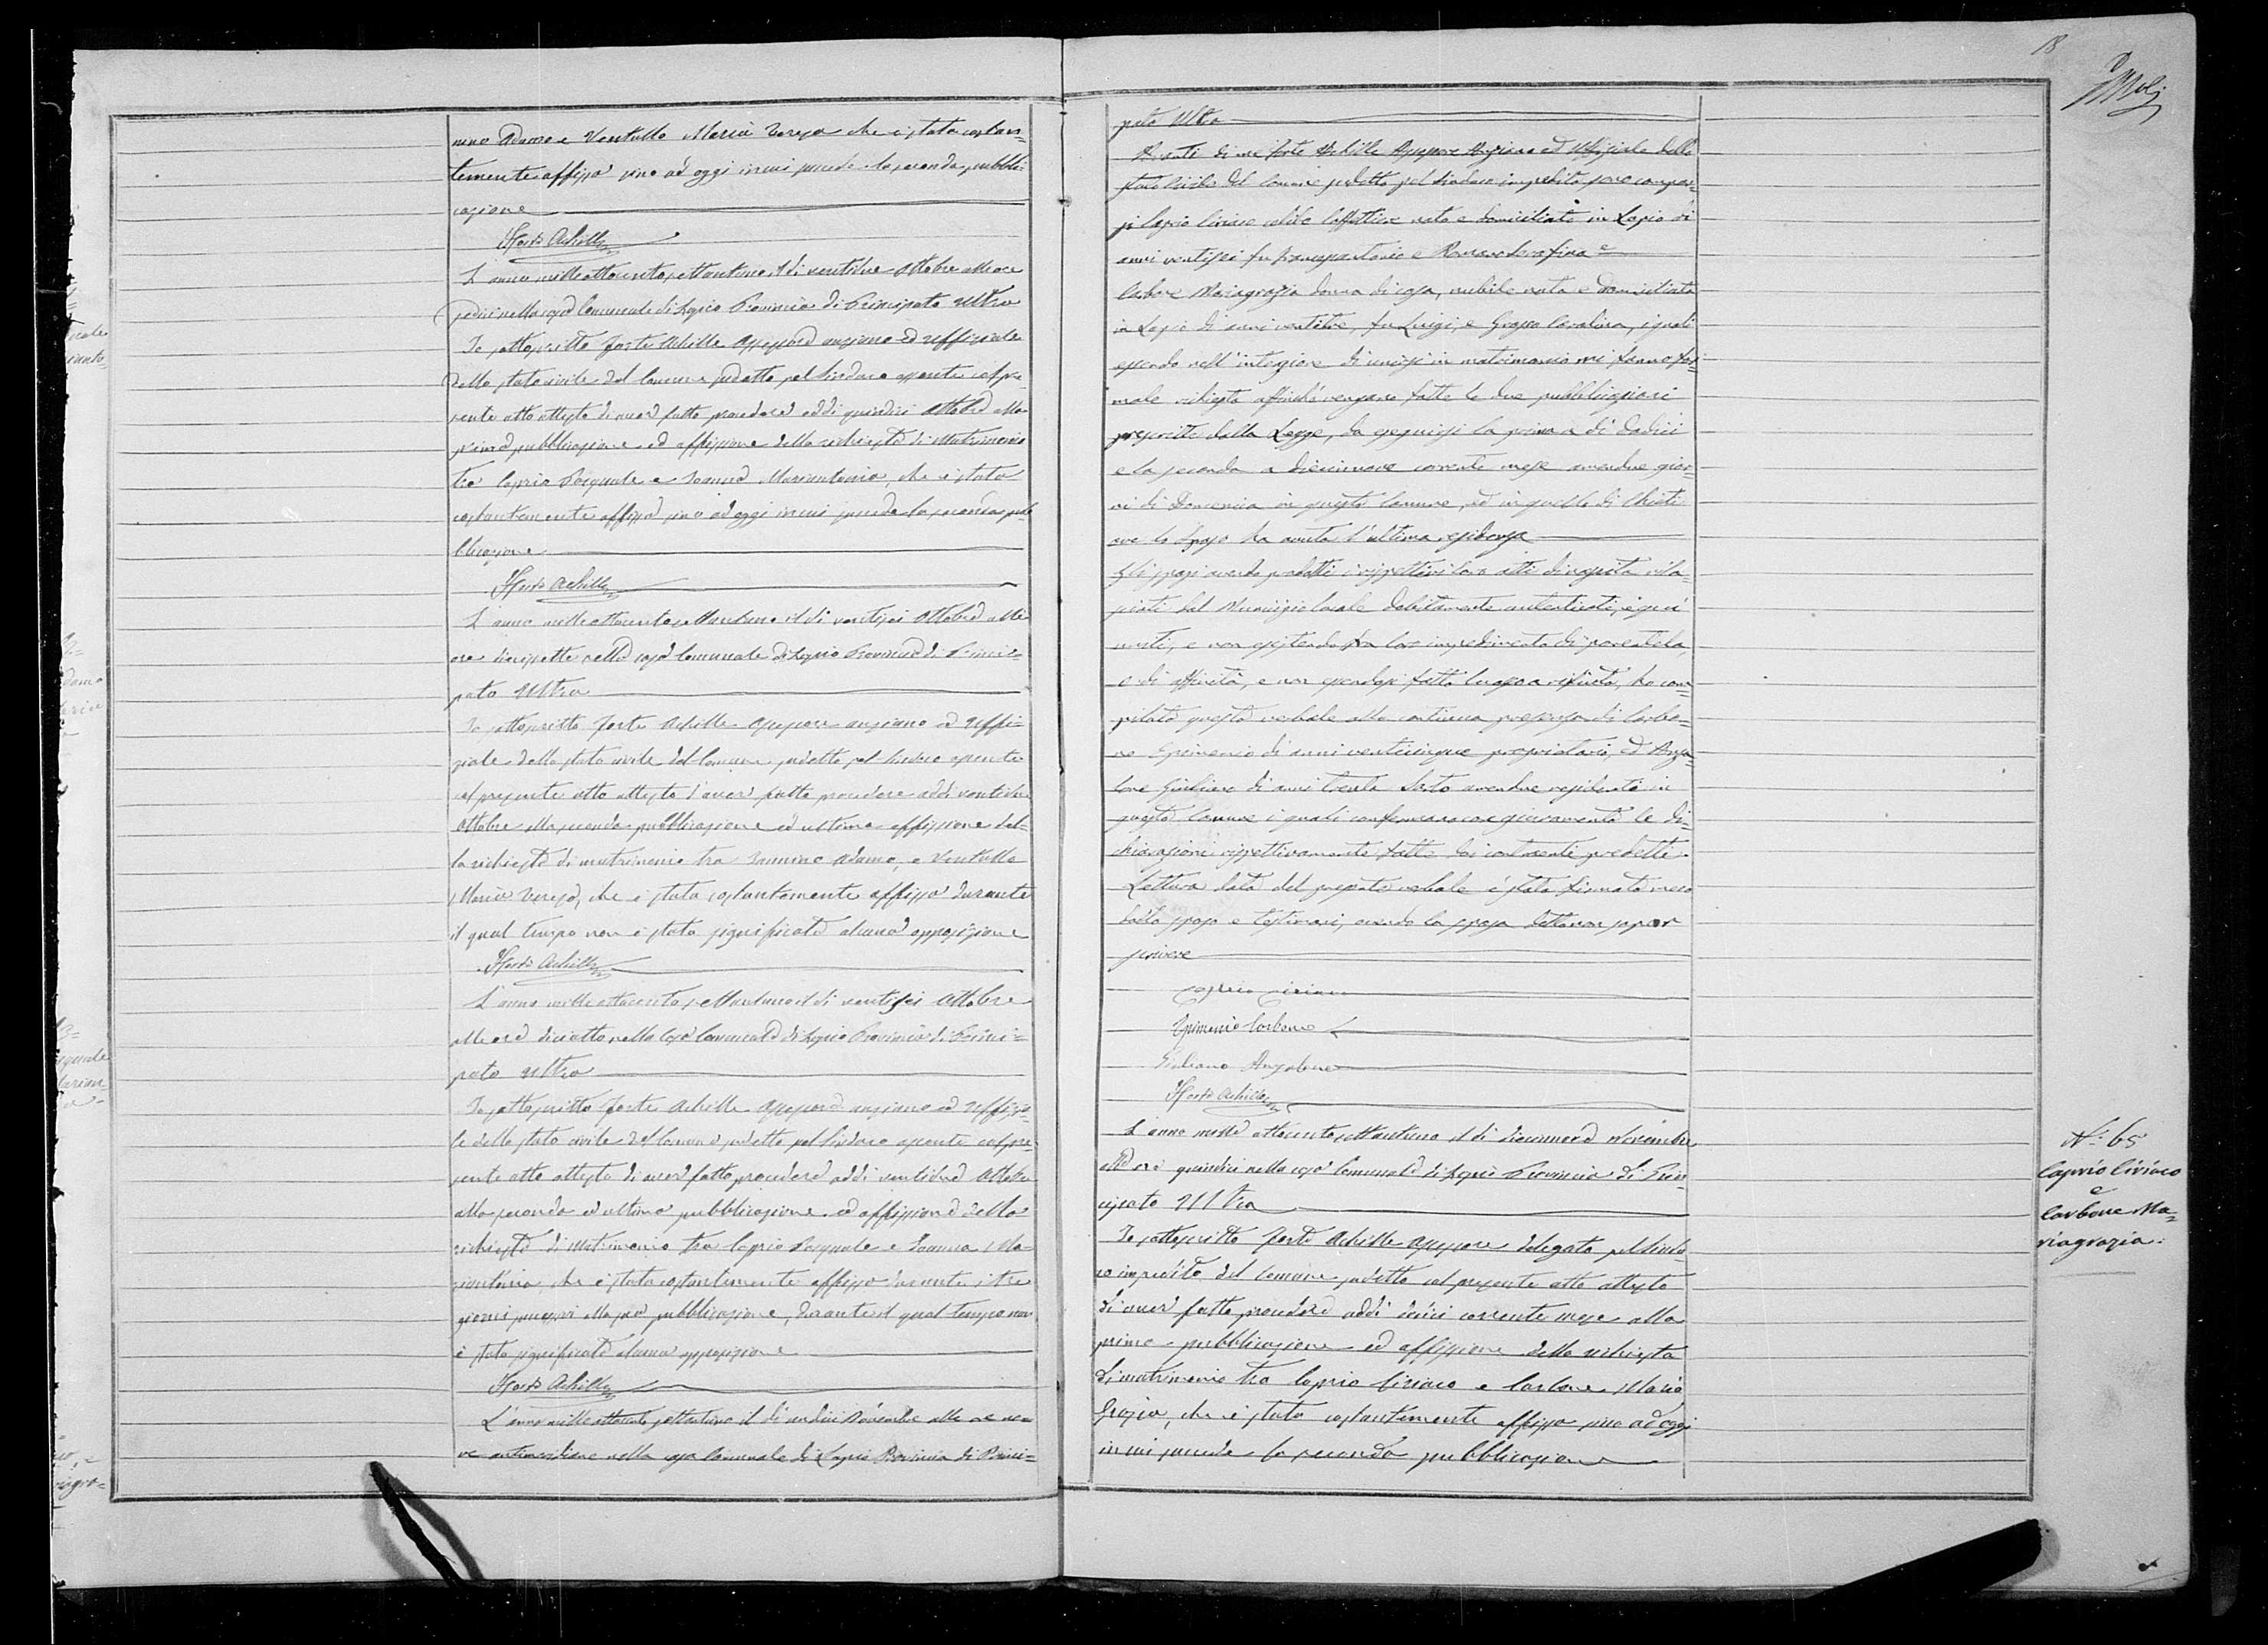 nino Adamo e Ventullo Maria Teresa che è stata costan=
temente affissa sino ad oggi in cui procede la seconda pubbli=
cazione
Forte Achille
L'anno milleottocentosettantuno il dì ventidue Ottobre alle ore
sedici nella casa Comunale di Lapio Provincia di Principato Ultra
Io sottoscritto Forte Achille Assessore anziano ed Uffiziale
dello stato civile del Comune sudetto pel Sindaco assente col pre=
sente atto attesto di aver fatto procedere addì quindici Ottobre alla
prima pubblicazione ed affissione della richiesta di Matrimonio
tra Caprio Pasquale e Ioanna Mariantonia, che è stata
costantemente affissa sino ad oggi in cui procede la seconda pub=
blicazione
Forte Achille
L'anno milleottocentosettantuno il dì ventisei Ottobre alle
ore diecisette nella casa Comunale di Lapio Provincia di Princi=
pato Ultra
Io sottoscritto Forte Achille Assessore anziano ed Uffi=
ziale dello stato civile del Comune sudetto pel Sindaco assente
col presente atto attesto d'aver fatto procedere addì ventidue
Ottobre alla seconda pubblicazione ed ultima affissione del=
la richiesta di matrimonio tra Iannino Adamo, e Ventullo
Maria Teresa, che è stata costantemente affissa durante
il qual tempo non è stata significata alcuna opposizione
Forte Achille
L'anno milleottocentosettantuno il dì ventisei Ottobre
alle ore dieciotto nella casa Comunale di Lapio Provincia di Princi=
pato Ultra
Io sottoscritto Forte Achille Assessore anziano ed Uffizia=
le dello stato civile del Comune sudetto pel Sindaco assente col pre=
sente atto attesto di aver fatto procedere addì ventidue Ottobre
alla seconda ed ultima pubblicazione ed affissione della
richiesta di Matrimonio tra Caprio Pasquale e Ioanna Ma=
riantonia, che è stata costantemente affissa durante i tre
giorni successivi alla pubblicazione, durante il qual tempo non
è stata significata alcuna opposizione
Forte Achille
L'anno milleottocento settantuno il dì undici Novembre alle ore no=
ve antimeridiane nella casa Comunale di Lapio Provincia di Princi=
18
pato Ultra
Avanti di me Forte Achille Assessore Anziano ed Uffiziale dello
stato Civile del Comune sudetto pel Sindaco impedito sono compar=
si Caprio Ciriaco celibe nato e domiciliato in Lapio di
anni ventisei fu Francescantonio e Romano Serafina e
Carbone Mariagrazia donna di casa, nubile nata e domiciliata
in Lapio di anni ventitre, fu Luigi, e Grasso Carolina, i quali
essendo nell'intenzione di unirsi in matrimonio mi fanno for=
male richiesta affinché vengano fatte le due pubblicazioni
prescritte dalla Legge, da eseguirsi la prima a dì dodici
e la seconda a diecinove corrente mese amendue gior=
ni di Domenica in questo Comune, ed in quello di Chieti
ove lo sposo ha avuta l'ultima residenza
Gli sposi avendo prodotti i rispettivi loro atti di nascita rila=
sciati dal Municipio locale debitamente autenticati, e qui
uniti, e non esistendo fra loro impedimento di parentela,
o di affinità, e non essendosi fatto luogo a rifiuto, ho com=
pilato questo verbale alla continua presenza di Carbo=
ne Epimenio di anni venticinque proprietario, ed Anza=
lone Giuliano di anni trenta Sarto amendue residenti in
questo Comune i quali confermano con giuramento le di=
chiarazioni rispettivamente fatte dai contraenti predetti.
Lettura data del presente verbale è stata firmato meco
dallo sposo e testimoni, avendo la sposa detto non saper
scrivere
Caprio Ciriaco
Epimenio Carbone
Giuliano Anzalone
Forte Achille
L'anno mille ottocentosettantuno il dì diecinnove Novembre
alle ore quindici nella casa Comunale di Lapio Provincia di Prin=
cipato Ultra
Io sottoscritto Forte Achille Assessore delegato pel Sinda=
co impedito del Comune sudetto col presente atto attesto
di aver fatto procedere addì dodici corrente mese alla
prima pubblicazione ed affissione della richiesta
di matrimonio tra Caprio Ciriaco e Carbone Maria
Grazia, che è stata costantemente affissa sino ad oggi
in cui procede la seconda pubblicazione
N.° 65
Caprio Ciriaco
e
Carbone Ma=
riagrazia.